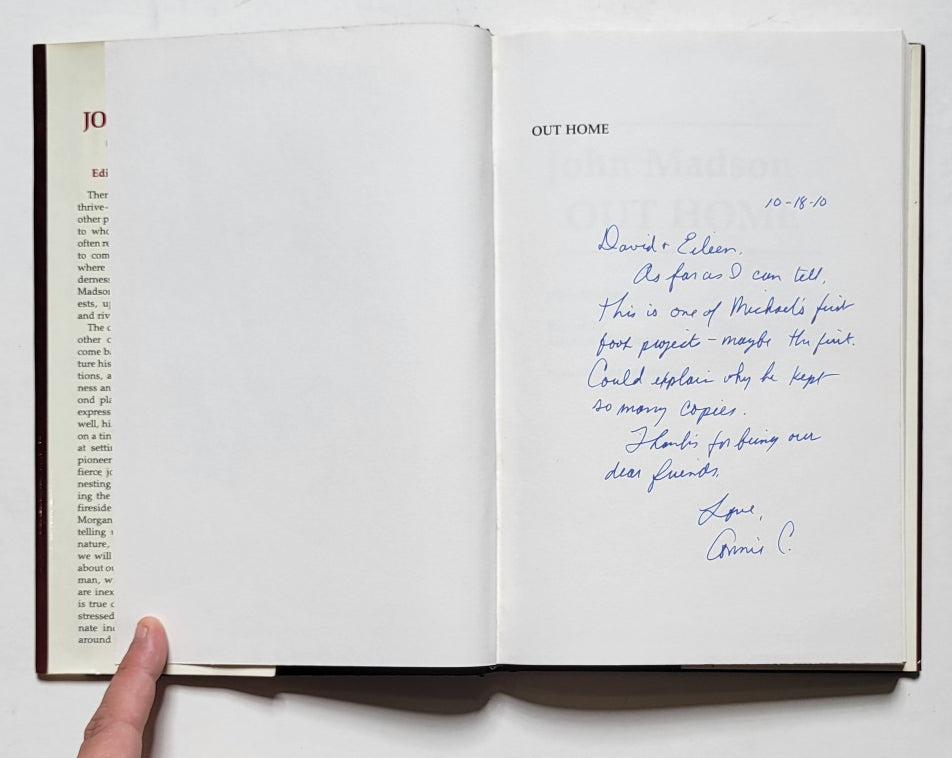 JO
Edi
Ther
thrive-
other p
to who
often re
to com
where
derness
Madson
ests, u
and riv
The c
other c
come b
ture his
tions, a
ness an
ond pla
express
well, hi
on a tin
at setti
pioneer
fierce jo
nesting
ing the
fireside
Morgan
telling
nature,
we will
about ou
man, w
are inex
is true
stressed
nate in
around
OUT HOME
John Madson
OUT HOME
10-18-10
David + Eileen,
As far as I can tell,
this is one of Michael's first
book projects - maybe the first.
Could explain why he kept
so many copies.
Thanks for being our
dear friends.
Love,
Connie C.